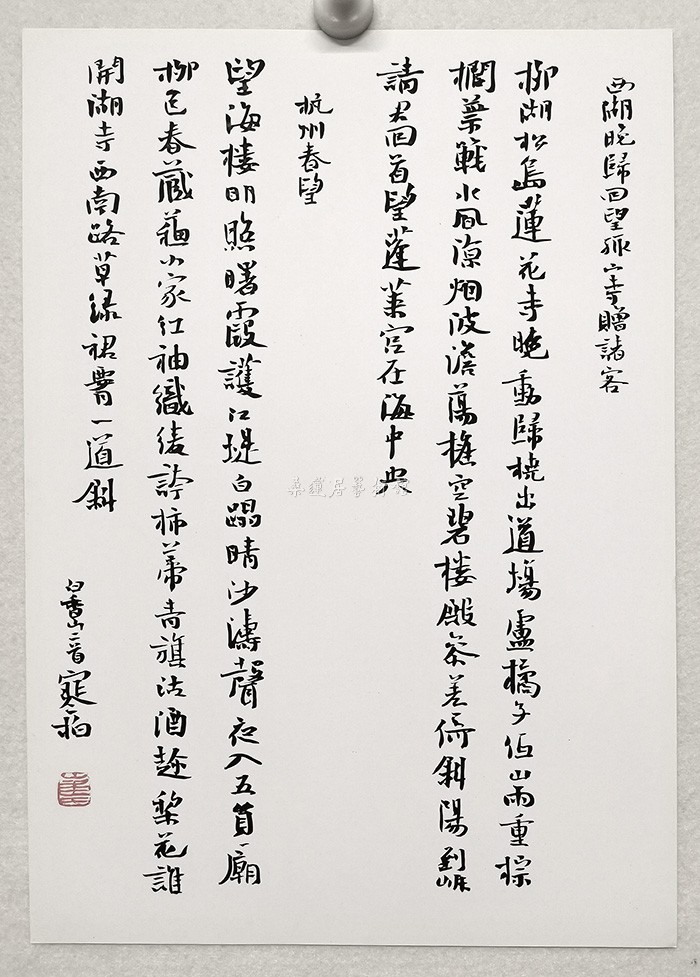 西湖晚歸回望孤山寺贈諸客
柳湖松島蓮花寺晚動歸橈出道場盧橘子低山雨重棕
櫚葉戰水風涼烟波澹蕩搖空碧樓殿參差倚斜陽到岸
請君回首望蓬萊宮在海中央
杭州春望
望海樓明照曙霞護江堤白蹋晴沙濤聲夜入五員廟
柳色春藏蘇小家紅袖織綾誇柿蒂青旗沽酒趁梨花誰
開湖寺西南路草綠裙腰一道斜
白香山二首寒柏
桑蓮居藝術館